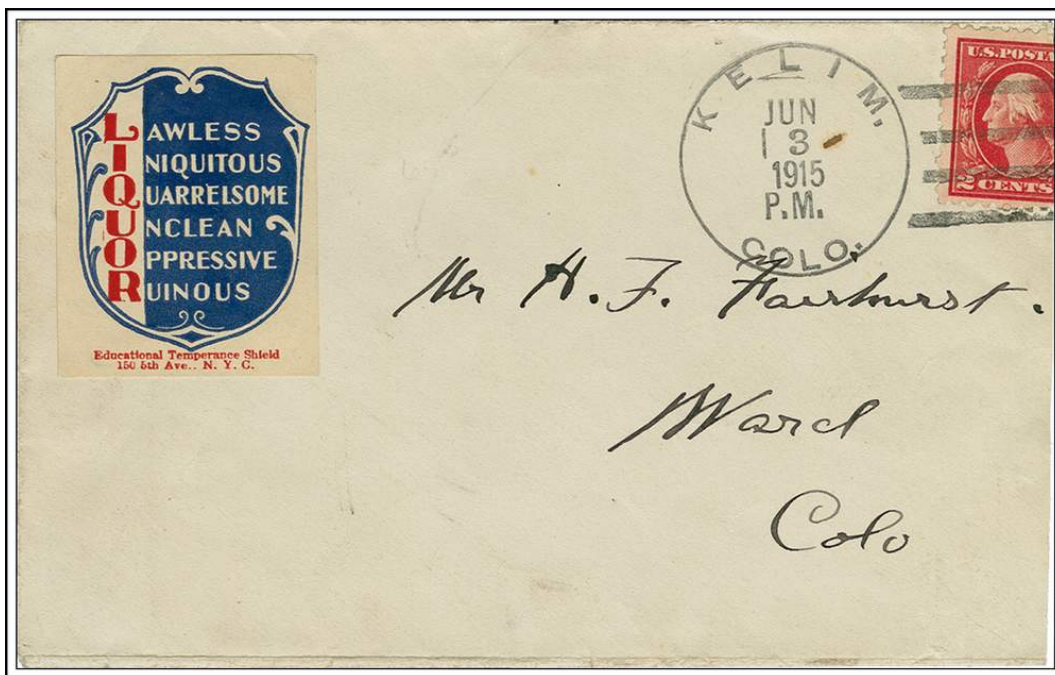 LAWLESS
INIQUITOUS
QUARRELSOME
UNCLEAN
OPPRESSIVE
RUINOUS
Educational Temperance Shield
150 5th Ave.. N. Y. C.
KELIM,
JUN
13
1915
P.M.
COLO.
U.S.POSTA
2 CENTS
Mr H. F. Fairhurst.
Ward
Colo